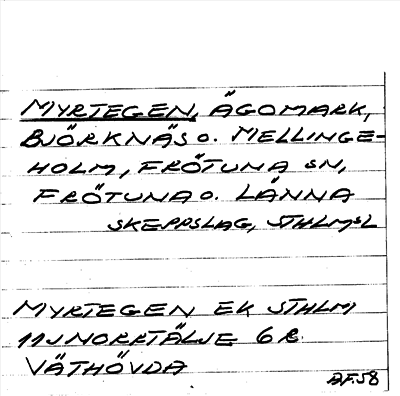 MYRTEGEN, ÄGOMARK,
BJÖRKNÄS O. MELLINGE-
HOLM, FRÖTUNA SN,
FRÖTUNA O. LÄNNA
SKEPPSLAG, STHLMSL
MYRTEGEN EK STHLM
11J NORRTÄLJE 6 c
VÄTHÖVDA
AF.58